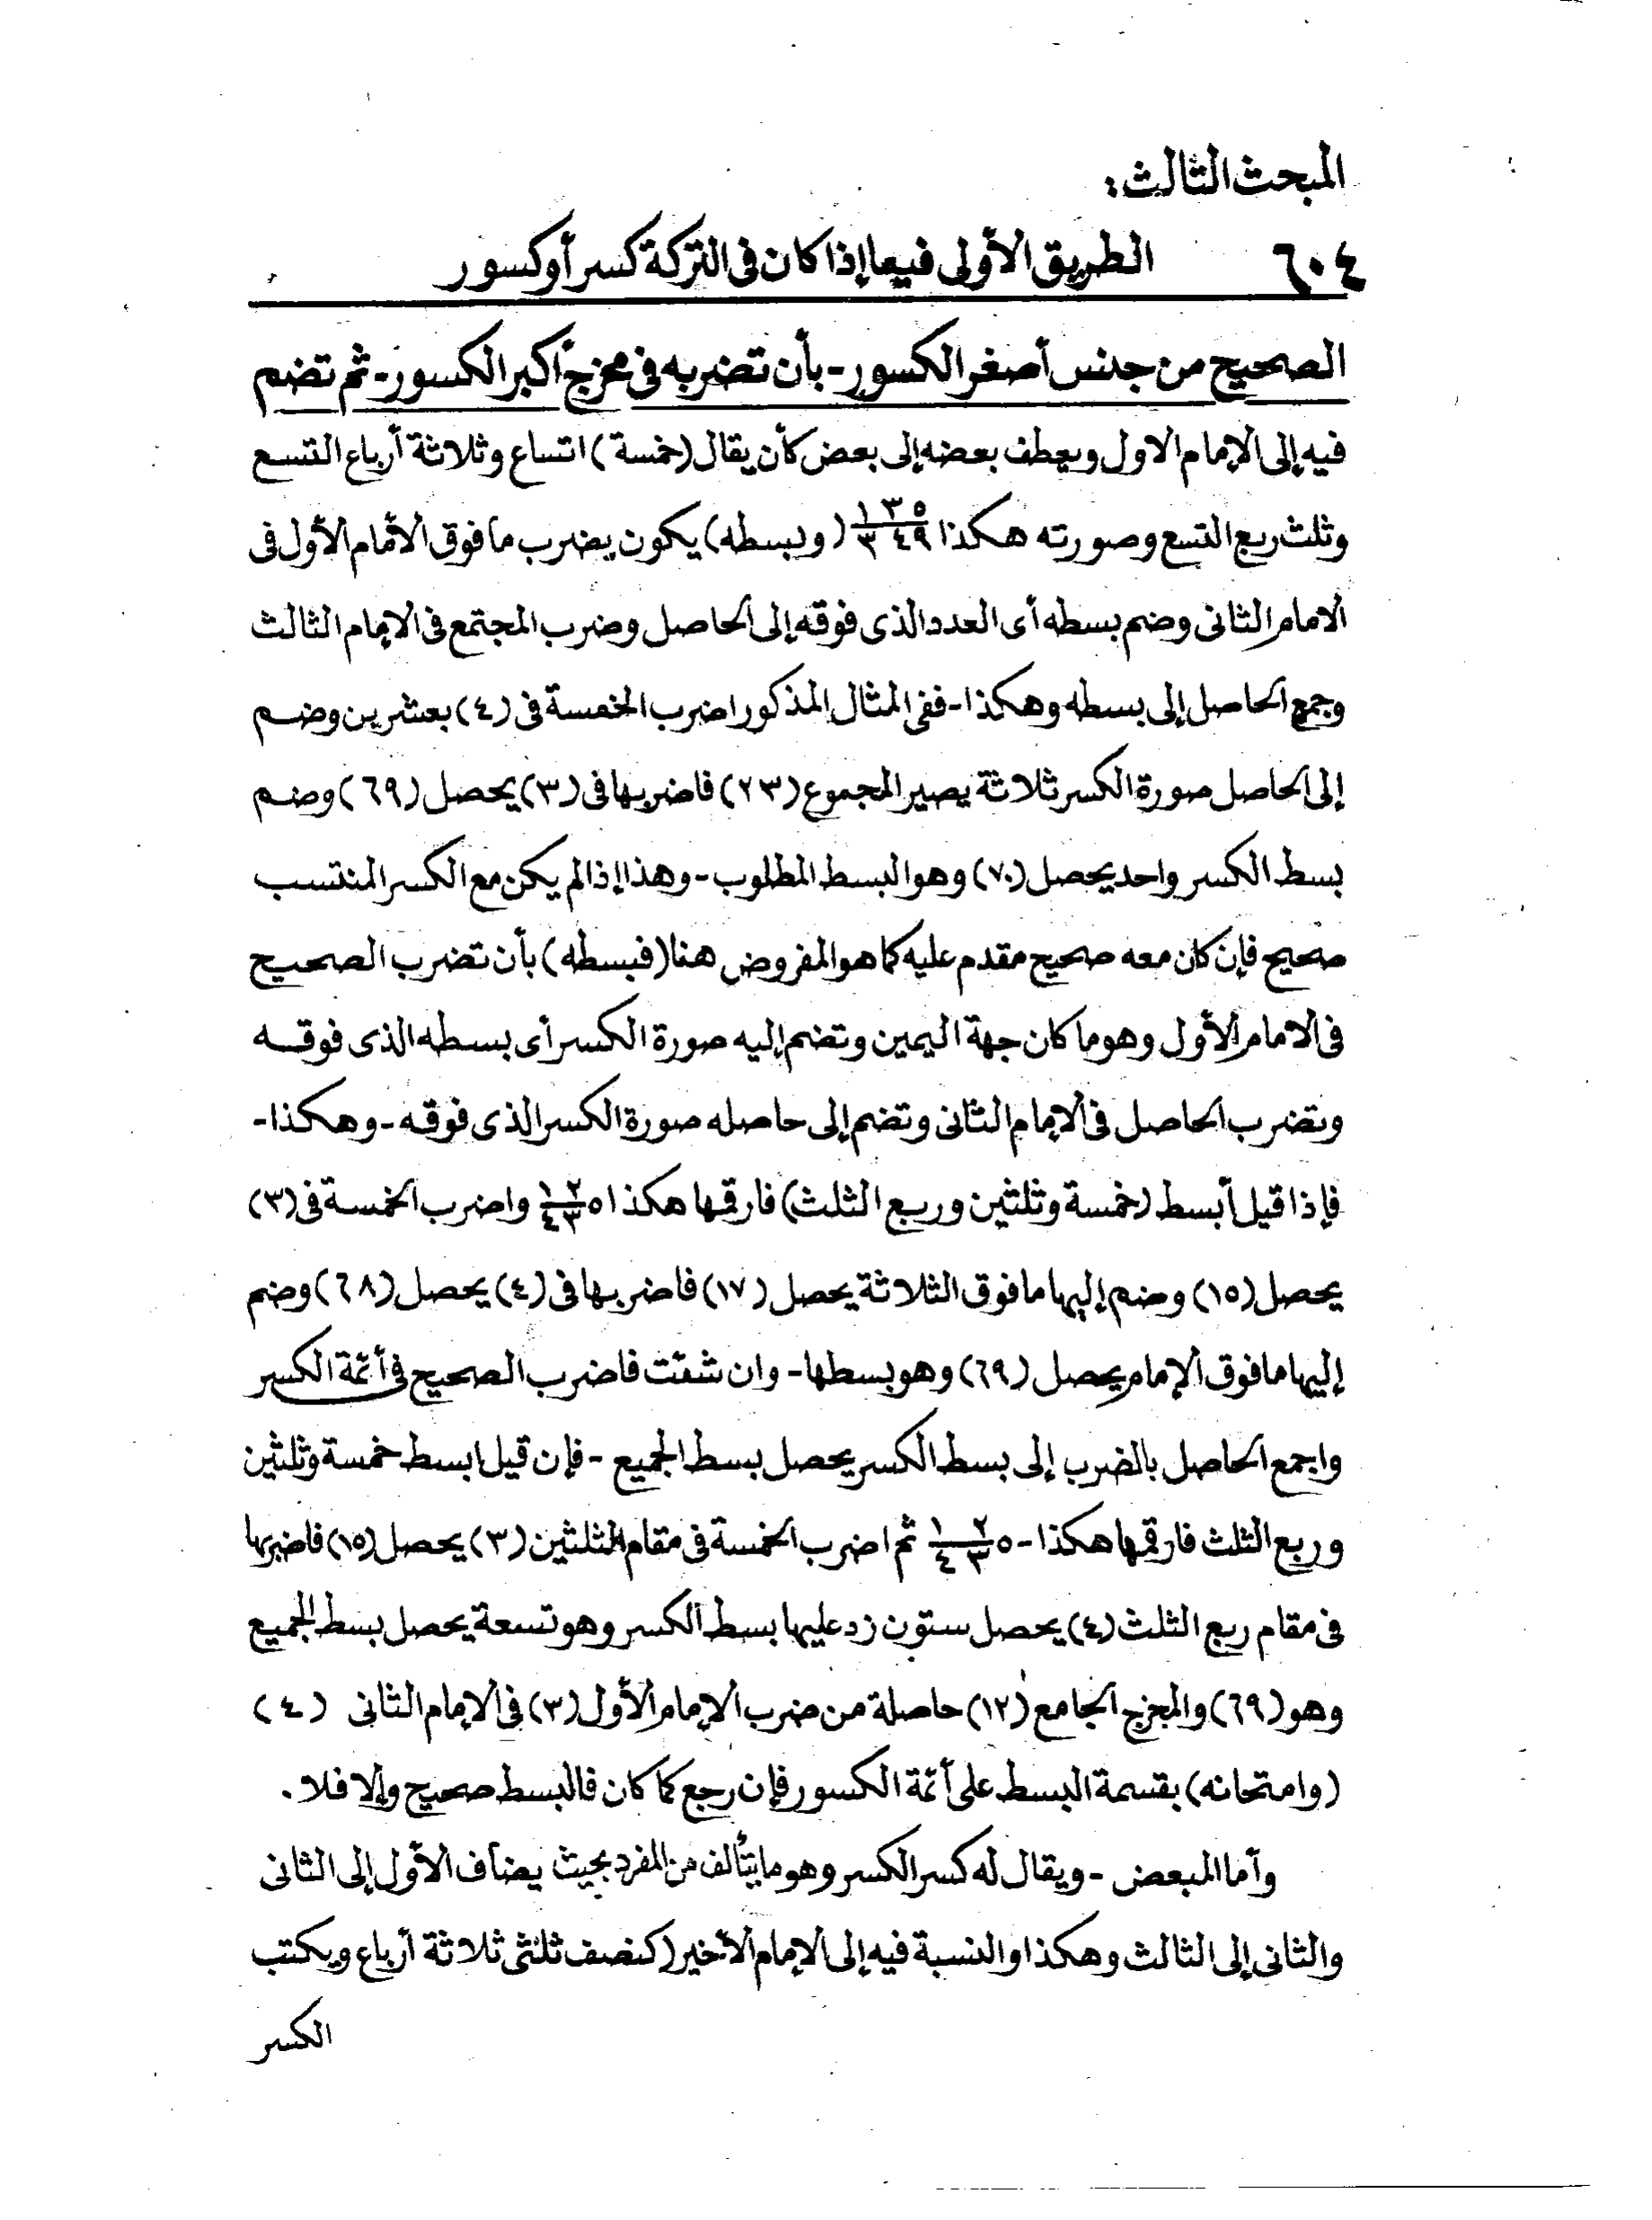 المبحث الثالث :
٦٠٤ الطريق الأولى فيما إذا كان فى التركة كسر أو كسور
الصحيح من جنس أصغر الكسور - بأن تضربه فى مخرج أكبر الكسور - ثم تضم
فيه إلى الإمام الاول ويعطف بعضه إلى بعض كأن يقال (خمسة) اتساع وثلاثة أرباع التسع
وثلث ربع التسع وصورته هكذا ١ ٣ ٥ / ٣ ٤ ٩ (وبسطه) يكون يضرب ما فوق الأمام الأول فى
الامام الثانى وضم بسطه أى العدد الذى فوقه إلى الحاصل وضرب المجتمع فى الإمام الثالث
وجمع الحاصل إلى بسطه وهكذا - ففى المثال المذكور اضرب الخمسة فى (٤) بعشرين وضم
إلى الحاصل صورة الكسر ثلاثة يصير المجموع (٢٣) فاضربها فى (٣) يحصل (٦٩) وضم
بسط الكسر واحد يحصل (٧٠) وهو البسط المطلوب - وهذا إذا لم يكن مع الكسر المنتسب
صحيح فإن كان معه صحيح مقدم عليه كما هو المفروض هنا (فبسطه) بأن تضرب الصحيح
فى الامام الأول وهو ما كان جهة اليمين وتضم إليه صورة الكسر أى بسطه الذى فوقه
وتضرب الحاصل فى الإمام الثانى وتضم إلى حاصله صورة الكسر الذى فوقه - وهكذا -
فإذا قيل أبسط (خمسة وثلثين وربع الثلث) فارقمها هكذا ٥ ١ ٢ / ٤ ٣ واضرب الخمسة فى (٣)
يحصل (١٥) وضم إليها ما فوق الثلاثة يحصل (١٧) فاضربها فى (٤) يحصل (٦٨) وضم
إليها ما فوق الإمام يحصل (٦٩) وهو بسطها - وان شئت فاضرب الصحيح فى أئمة الكسر
واجمع الحاصل بالضرب إلى بسط الكسر يحصل بسط الجميع - فإن قيل ابسط خمسة وثلثين
وربع الثلث فارقمها هكذا - ٥ ١ ٢ / ٤ ٣ ثم اضرب الخمسة فى مقام الثلثين (٣) يحصل (١٥) فاضربها
فى مقام ربع الثلث (٤) يحصل ستون زد عليها بسط الكسر وهو تسعة يحصل بسط الجميع
وهو (٦٩) والمخرج الجامع (١٢) حاصلة من ضرب الإمام الأول (٣) فى الإمام الثانى (٤)
(وامتحانه) بقسمة البسط على أئمة الكسور فإن رجع كما كان فالبسط صحيح وإلا فلا .
وأما المبعض - ويقال له كسر الكسر وهو ما يتألف من المفرد بحيث يضاف الأول إلى الثانى
والثانى إلى الثالث وهكذا والنسبة فيه إلى الإمام الأخير (كنصف ثلثى ثلاثة أرباع ويكتب
الكسر